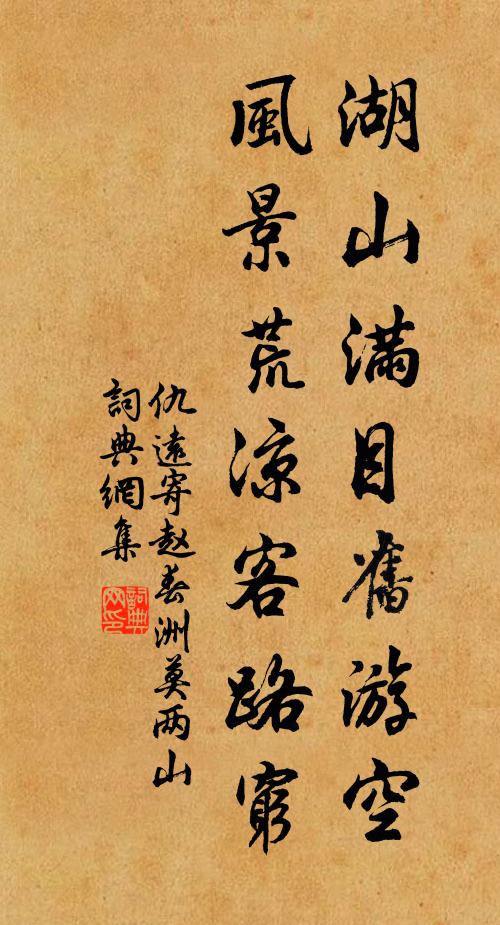 湖山滿目舊游空
風景荒涼客路窮
仇遠寄趙春洲莫兩山
詞典網集
詞典网印